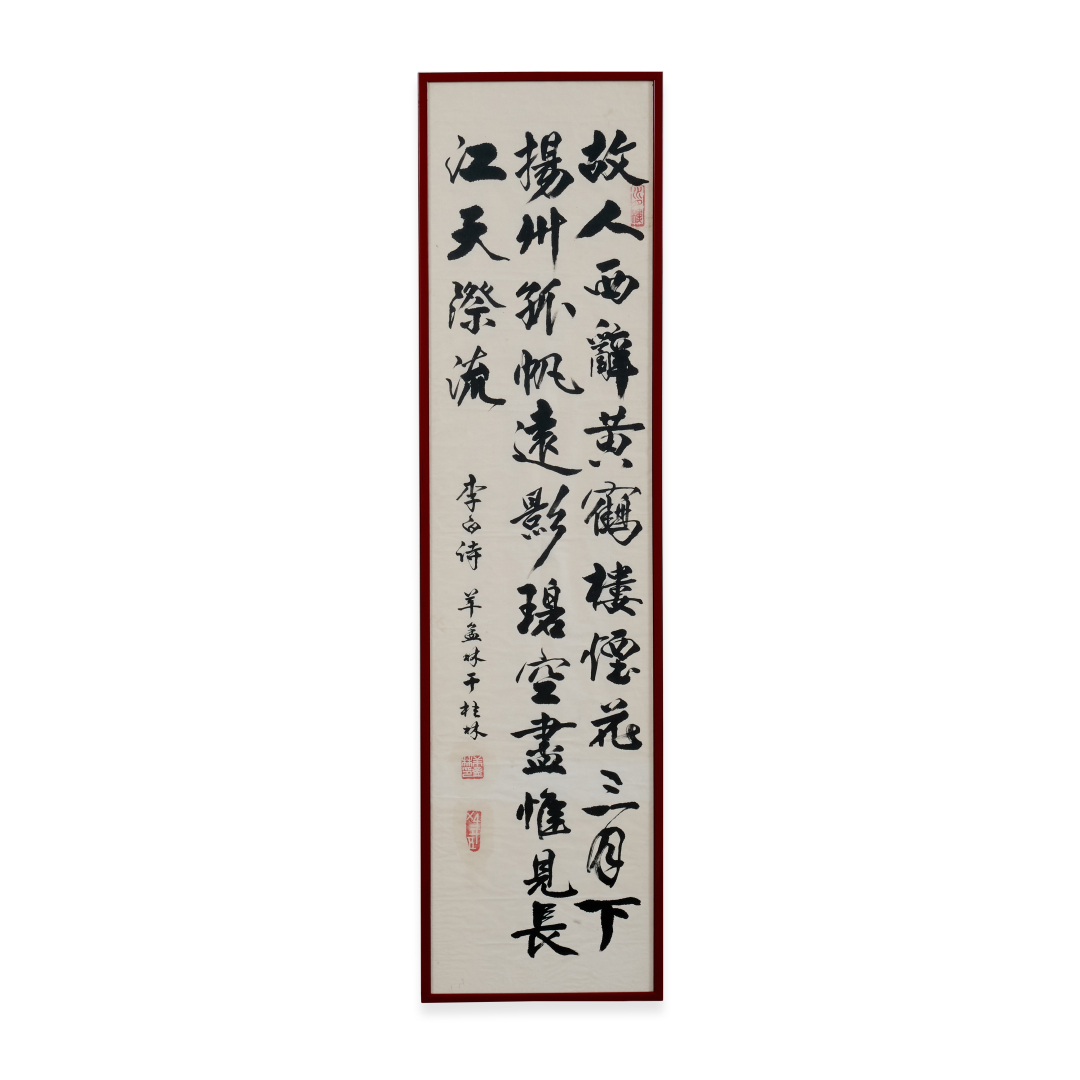 故人西辭黃鶴樓煙花三月下
揚州孤帆遠影碧空盡惟見長
江天際流
李白诗 羊孟林于桂林